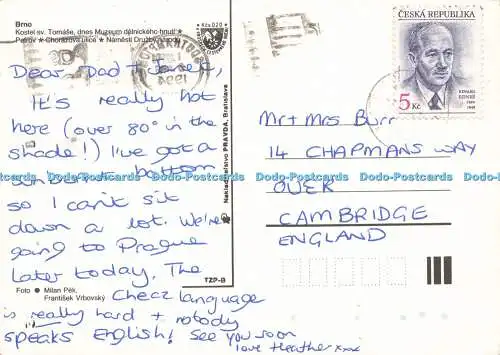 Brno
Kostel sv. Tomáše, dnes Muzeum dělnického hnutí
Petrov Chorizova ulice Náměstí Družby národů
Kčs 020
Dear Dad + Janet,
It's really hot
here (over 80° in the
shade!) I've got a
sunburnt bottom
so I can't sit
down a lot. We're
going to Prague
later today. The
Checz language
is really hard + nobody
speaks English! See you soon
love Heather xxx
Foto Milan Pék,
František Vrbovský
Nakladateľstvo PRAVDA, Bratislava
TZP-B
ČESKÁ REPUBLIKA
5 Kč
EDVARD
BENEŠ
1884
1948
Mr + Mrs Burr
14 CHAPMANS WAY
OVER
CAMBRIDGE
ENGLAND
Dodo-Postcards Dodo-Postcards Dodo-Postcards Dodo-Postcards
Dodo-Postcards Dodo-Postcards Dodo-Postcards Dodo-Postcards